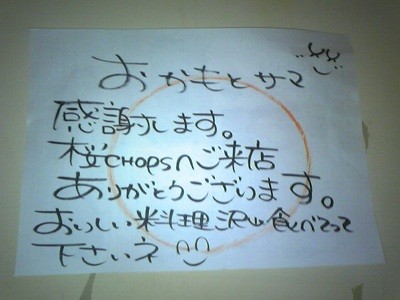 おかもとサマ
感謝してます。
桜CHOPSへご来店
ありがとうございます。
おいしい料理沢山食べてって
下さいネ